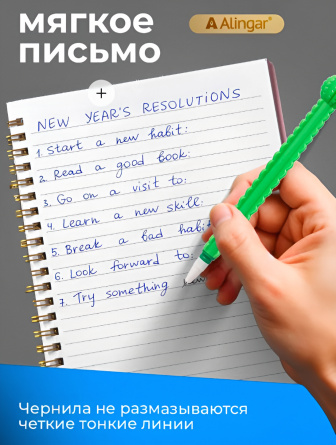 мягкое
письмо
Alingar®
NEW YEAR'S RESOLUTIONS
1. Start a new habit:
2. Read a good book:
3. Go on a visit to:
4. Learn a new skill:
5. Break a bad habit
6. Look forward to:
7. Try something new
Чернила не размазываются
четкие тонкие линии